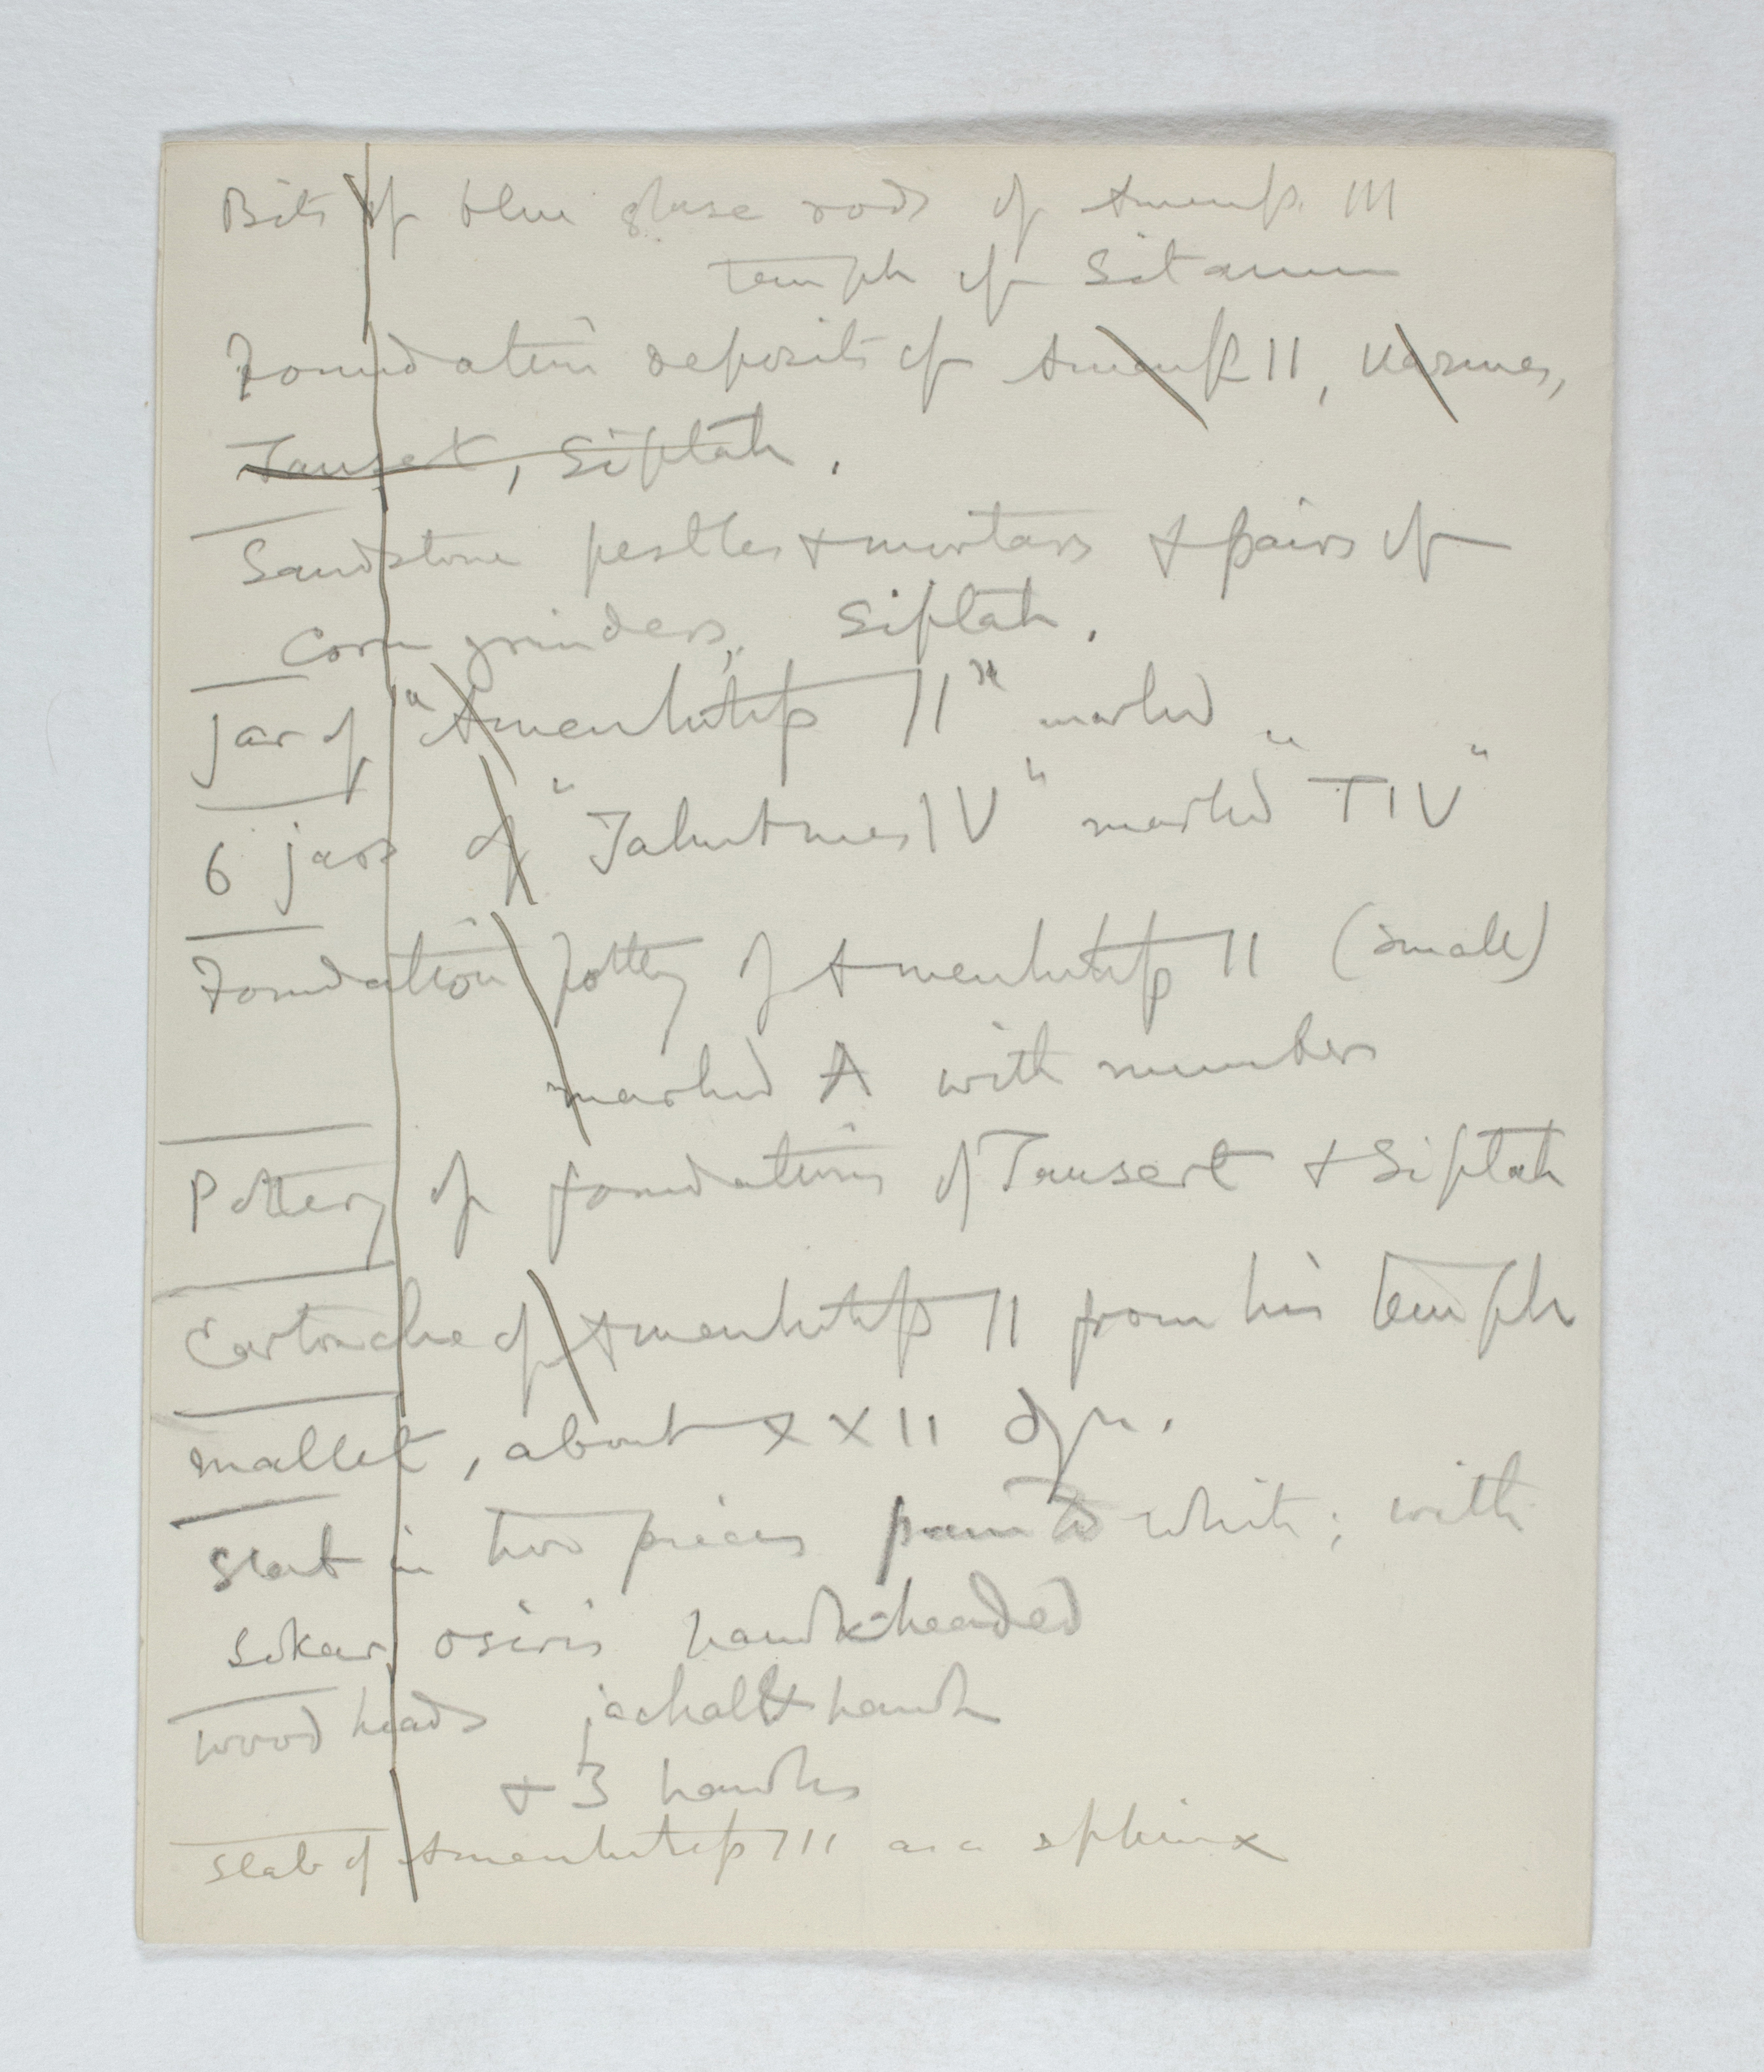 Bits of blue glaze rods of Amenh. III
temple of Sitamen
Foundation deposits of Amenh II, Uazmes,
Tausert, Siptah.
Sandstone pestles + mortars + pairs of
corn grinders, Siptah.
Jar of "Amenhotep II" marked "
6 jars of "Tahutmes IV" marked "TIV"
Foundation pottery of Amenhotep II (small)
marked A with numbers
Pottery of foundations of Tausert + Siptah
Cartouche of Amenhotep II from his temple
mallet, about XXII dyn.
Slab in two pieces painted white; with
Sokar osiris hawk-headed
wood heads jackal & hawk
+ 3 hawks
Slab of Amenhotep III as a sphinx